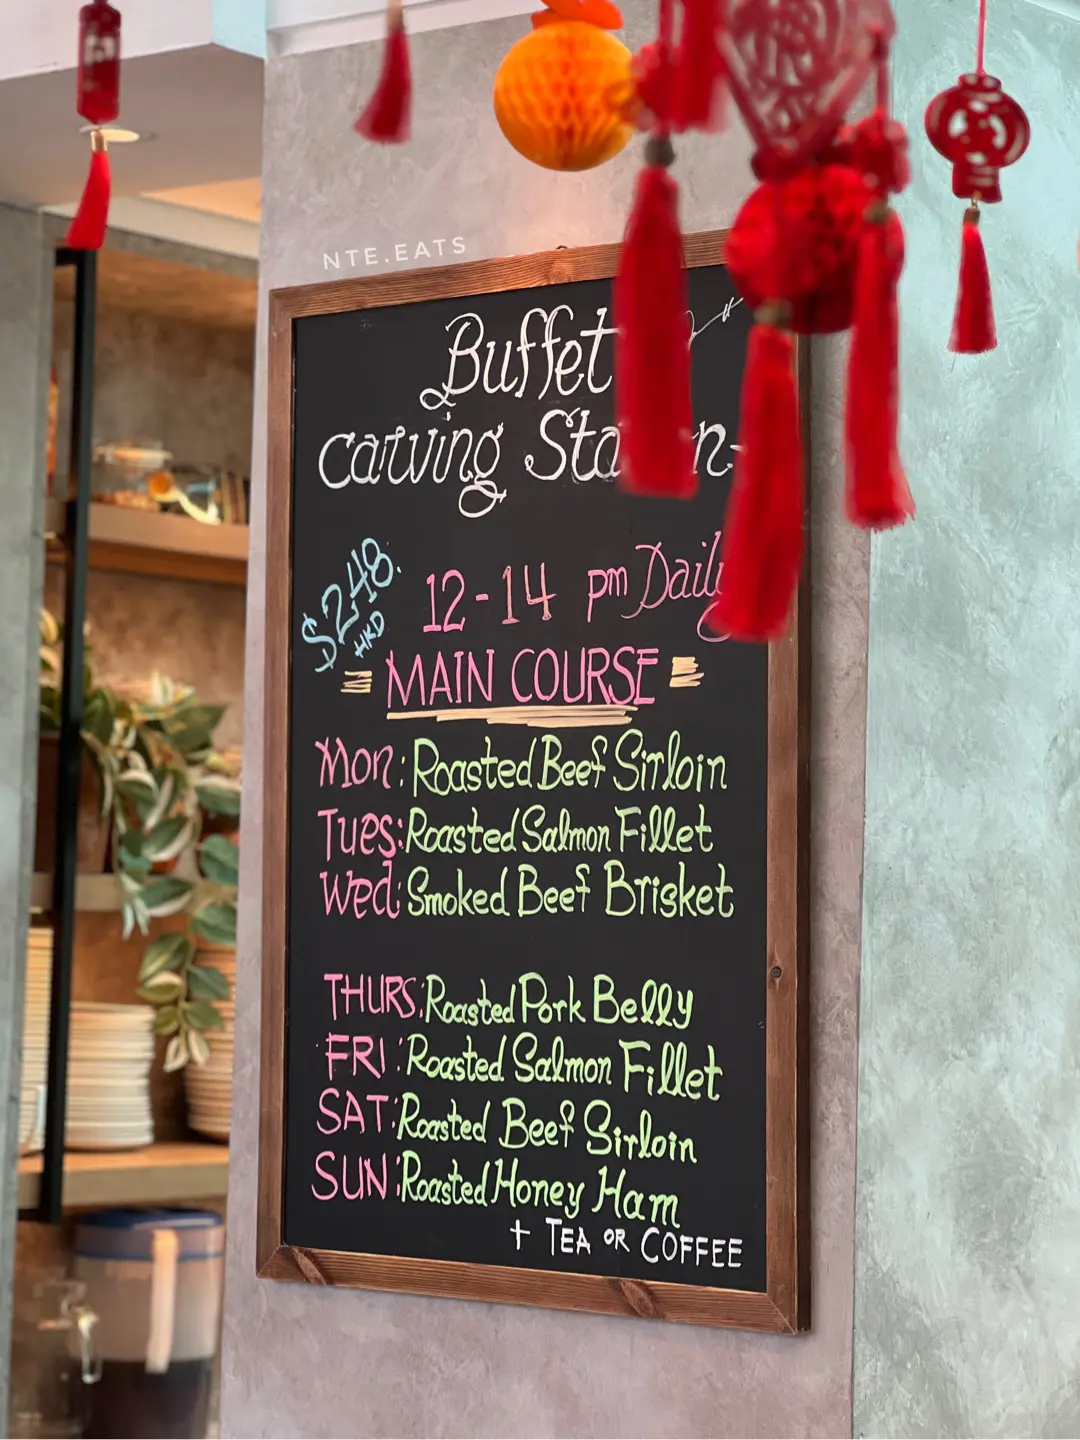 NTE.EATS
Buffet
Carving
$248.
HKD
12-14 pm Daily
MAIN COURSE
Mon: Roasted Beef Sirloin
Tues: Roasted Salmon Fillet
Wed: Smoked Beef Brisket
THURS: Roasted Pork Belly
FRI: Roasted Salmon Fillet
SAT: Roasted Beef Sirloin
SUN: Roasted Honey Ham
+ TEA OR COFFEE